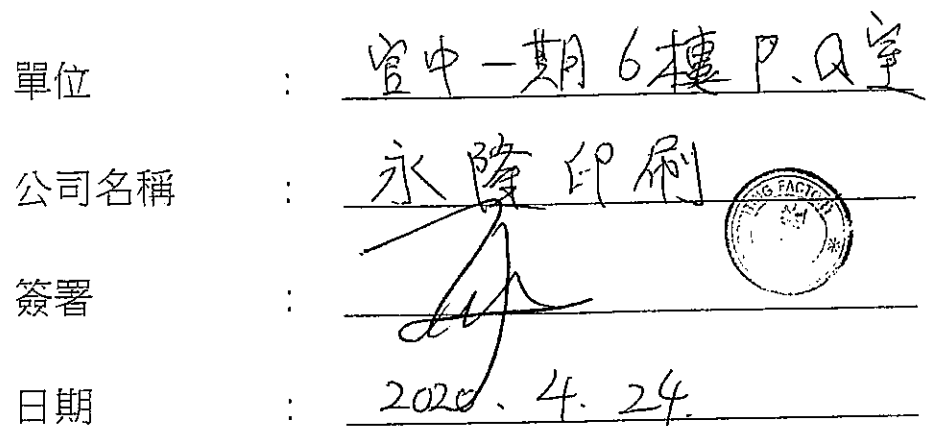 單位 : 官中一期6樓P、Q室
公司名稱 : 永隆印刷
TING FACTORY
簽署 :
日期 : 2020、4. 24.